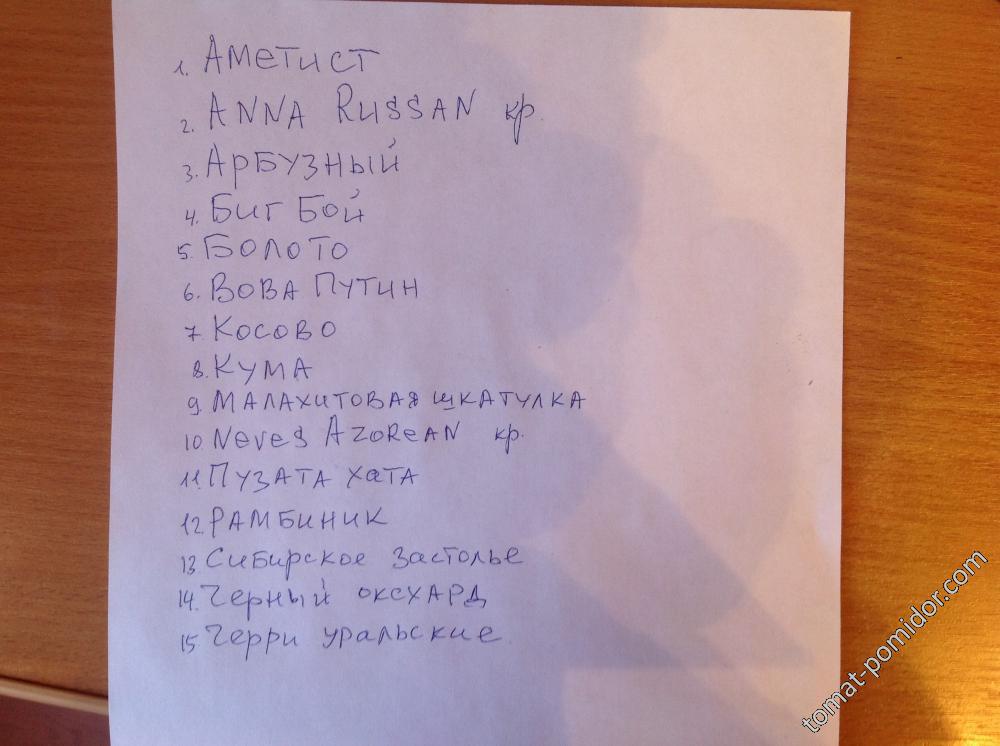 1. Аметист
2. ANNA RUSSAN кр.
3. Арбузный
4. Биг Бой
5. Болото
6. Вова Путин
7 Косово
8. Кума
9. Малахитовая шкатулка
10 Neves Azorean кр.
11. Пузата хата
12. Рамбиник
13. Сибирское застолье
14. Черный оксхард
15 Черри уральские.
tomat-pomidor.com